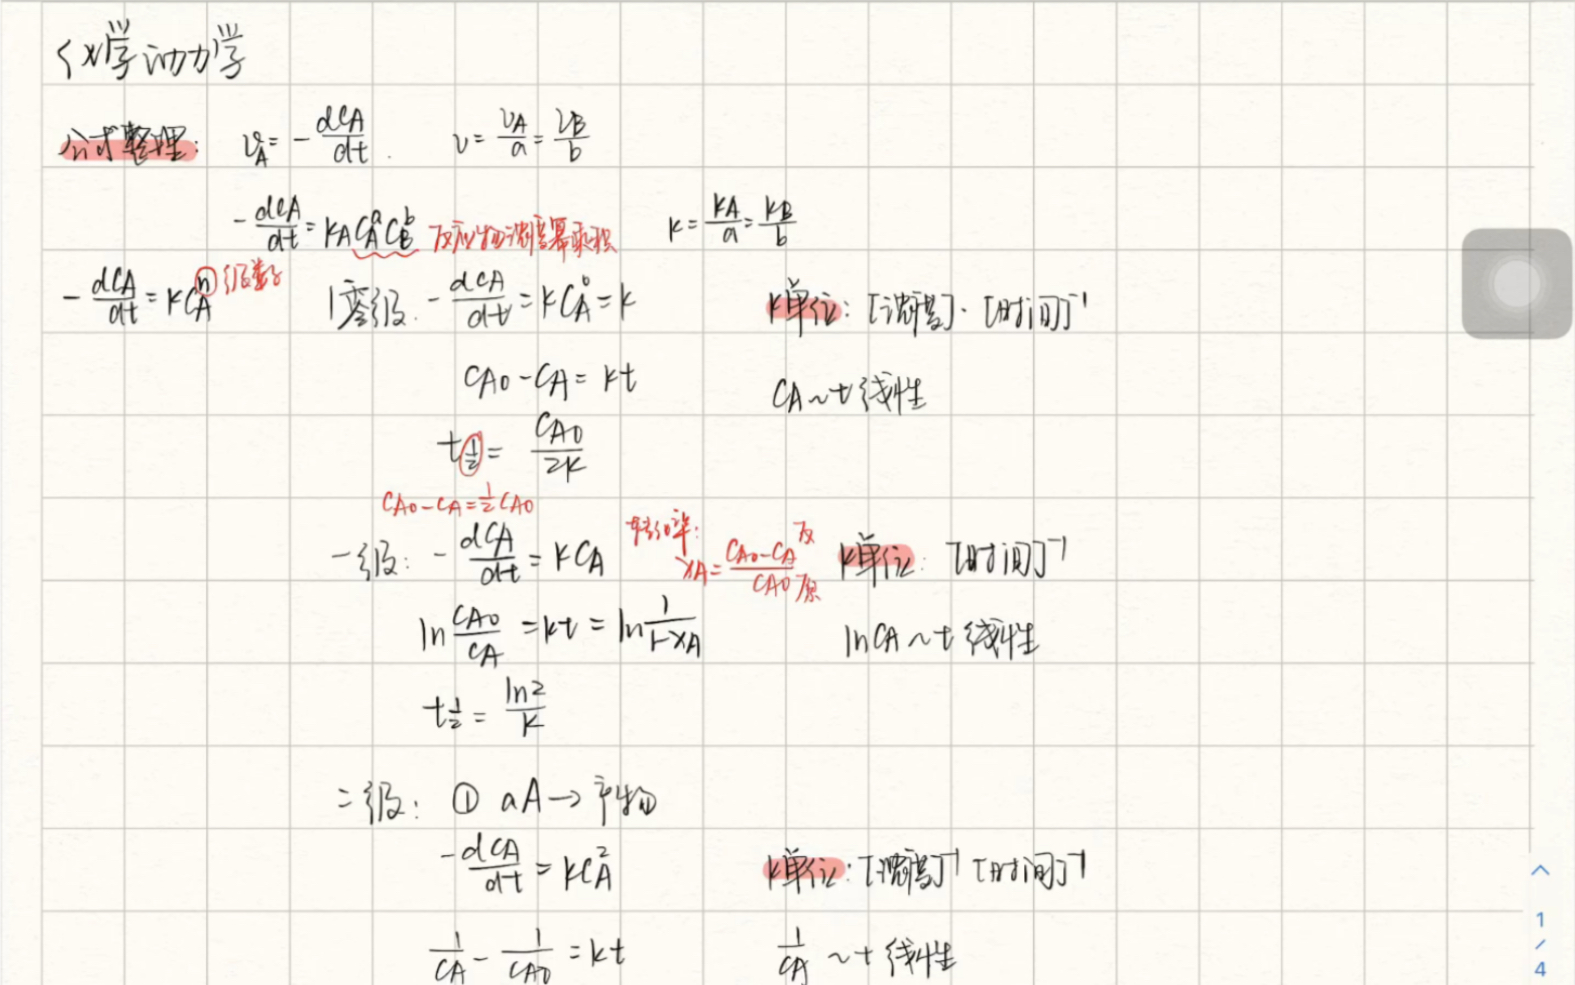 化学动力学
公式整理: v_A = -dC_A/dt v = v_A/a = v_B/b
-dC_A/dt = k_A C_A^a C_B^b 反应物浓度幂乘积 k = k_A/a = k_B/b
-dC_A/dt = kC_A^n 级数 零级: -dC_A/dt = kC_A^0 = k k单位: [浓度]·[时间]^-1
C_A0 - C_A = kt C_A ~ t 线性
t_1/2 = C_A0/2k
C_A0 - C_A = 1/2 C_A0
一级: -dC_A/dt = kC_A 转化率: x_A = (C_A0 - C_A)/C_A0 反 原 k单位: [时间]^-1
ln C_A0/C_A = kt = ln 1/(1-x_A) lnC_A ~ t 线性
t_1/2 = ln2/k
二级: ① aA → 产物
-dC_A/dt = kC_A^2 k单位: [浓度]^-1 [时间]^-1
1/C_A - 1/C_A0 = kt 1/C_A ~ t 线性
1/4